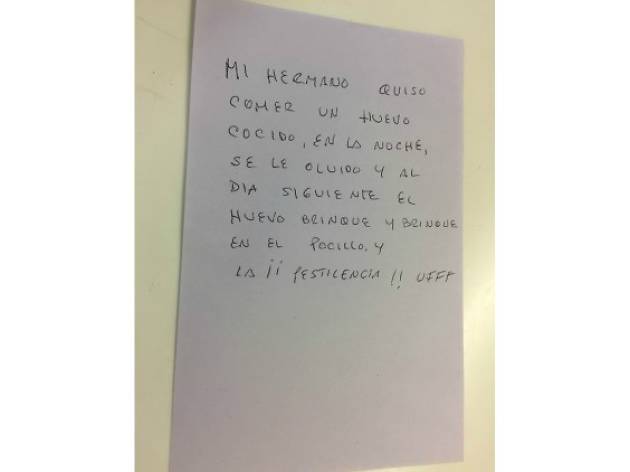 MI HERMANO QUISO
COMER UN HUEVO
COCIDO, EN LA NOCHE,
SE LE OLVIDO Y AL
DIA SIGUIENTE EL
HUEVO BRINQUE Y BRINQUE
EN EL POCILLO, Y
LA ¡¡ PESTILENCIA !! UFFF